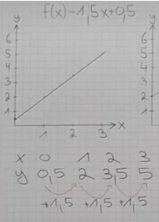 f(x)=1,5x+0,5
y
6
5
4
3
2
1
1 2 3 x
x 0 1 2 3
y 0,5 2 3,5 5
+1,5 +1,5 +1,5